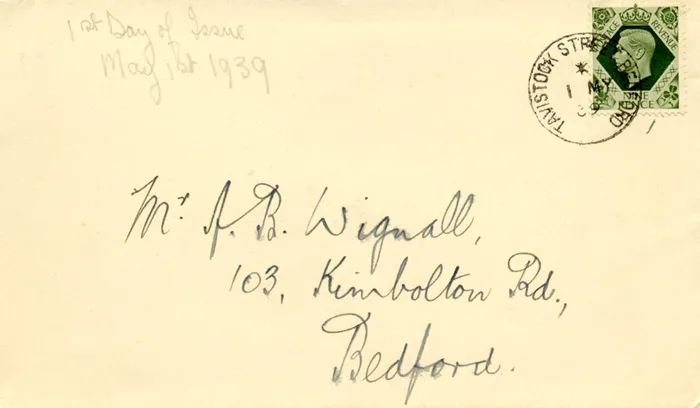 1st Day of Issue
May 1st 1939
POSTAGE REVENUE
NINE PENCE
TAVISTOCK STREET BEDFORD
*
1 MY
39
Mr A. B. Wignall,
103, Kimbolton Rd.,
Bedford.